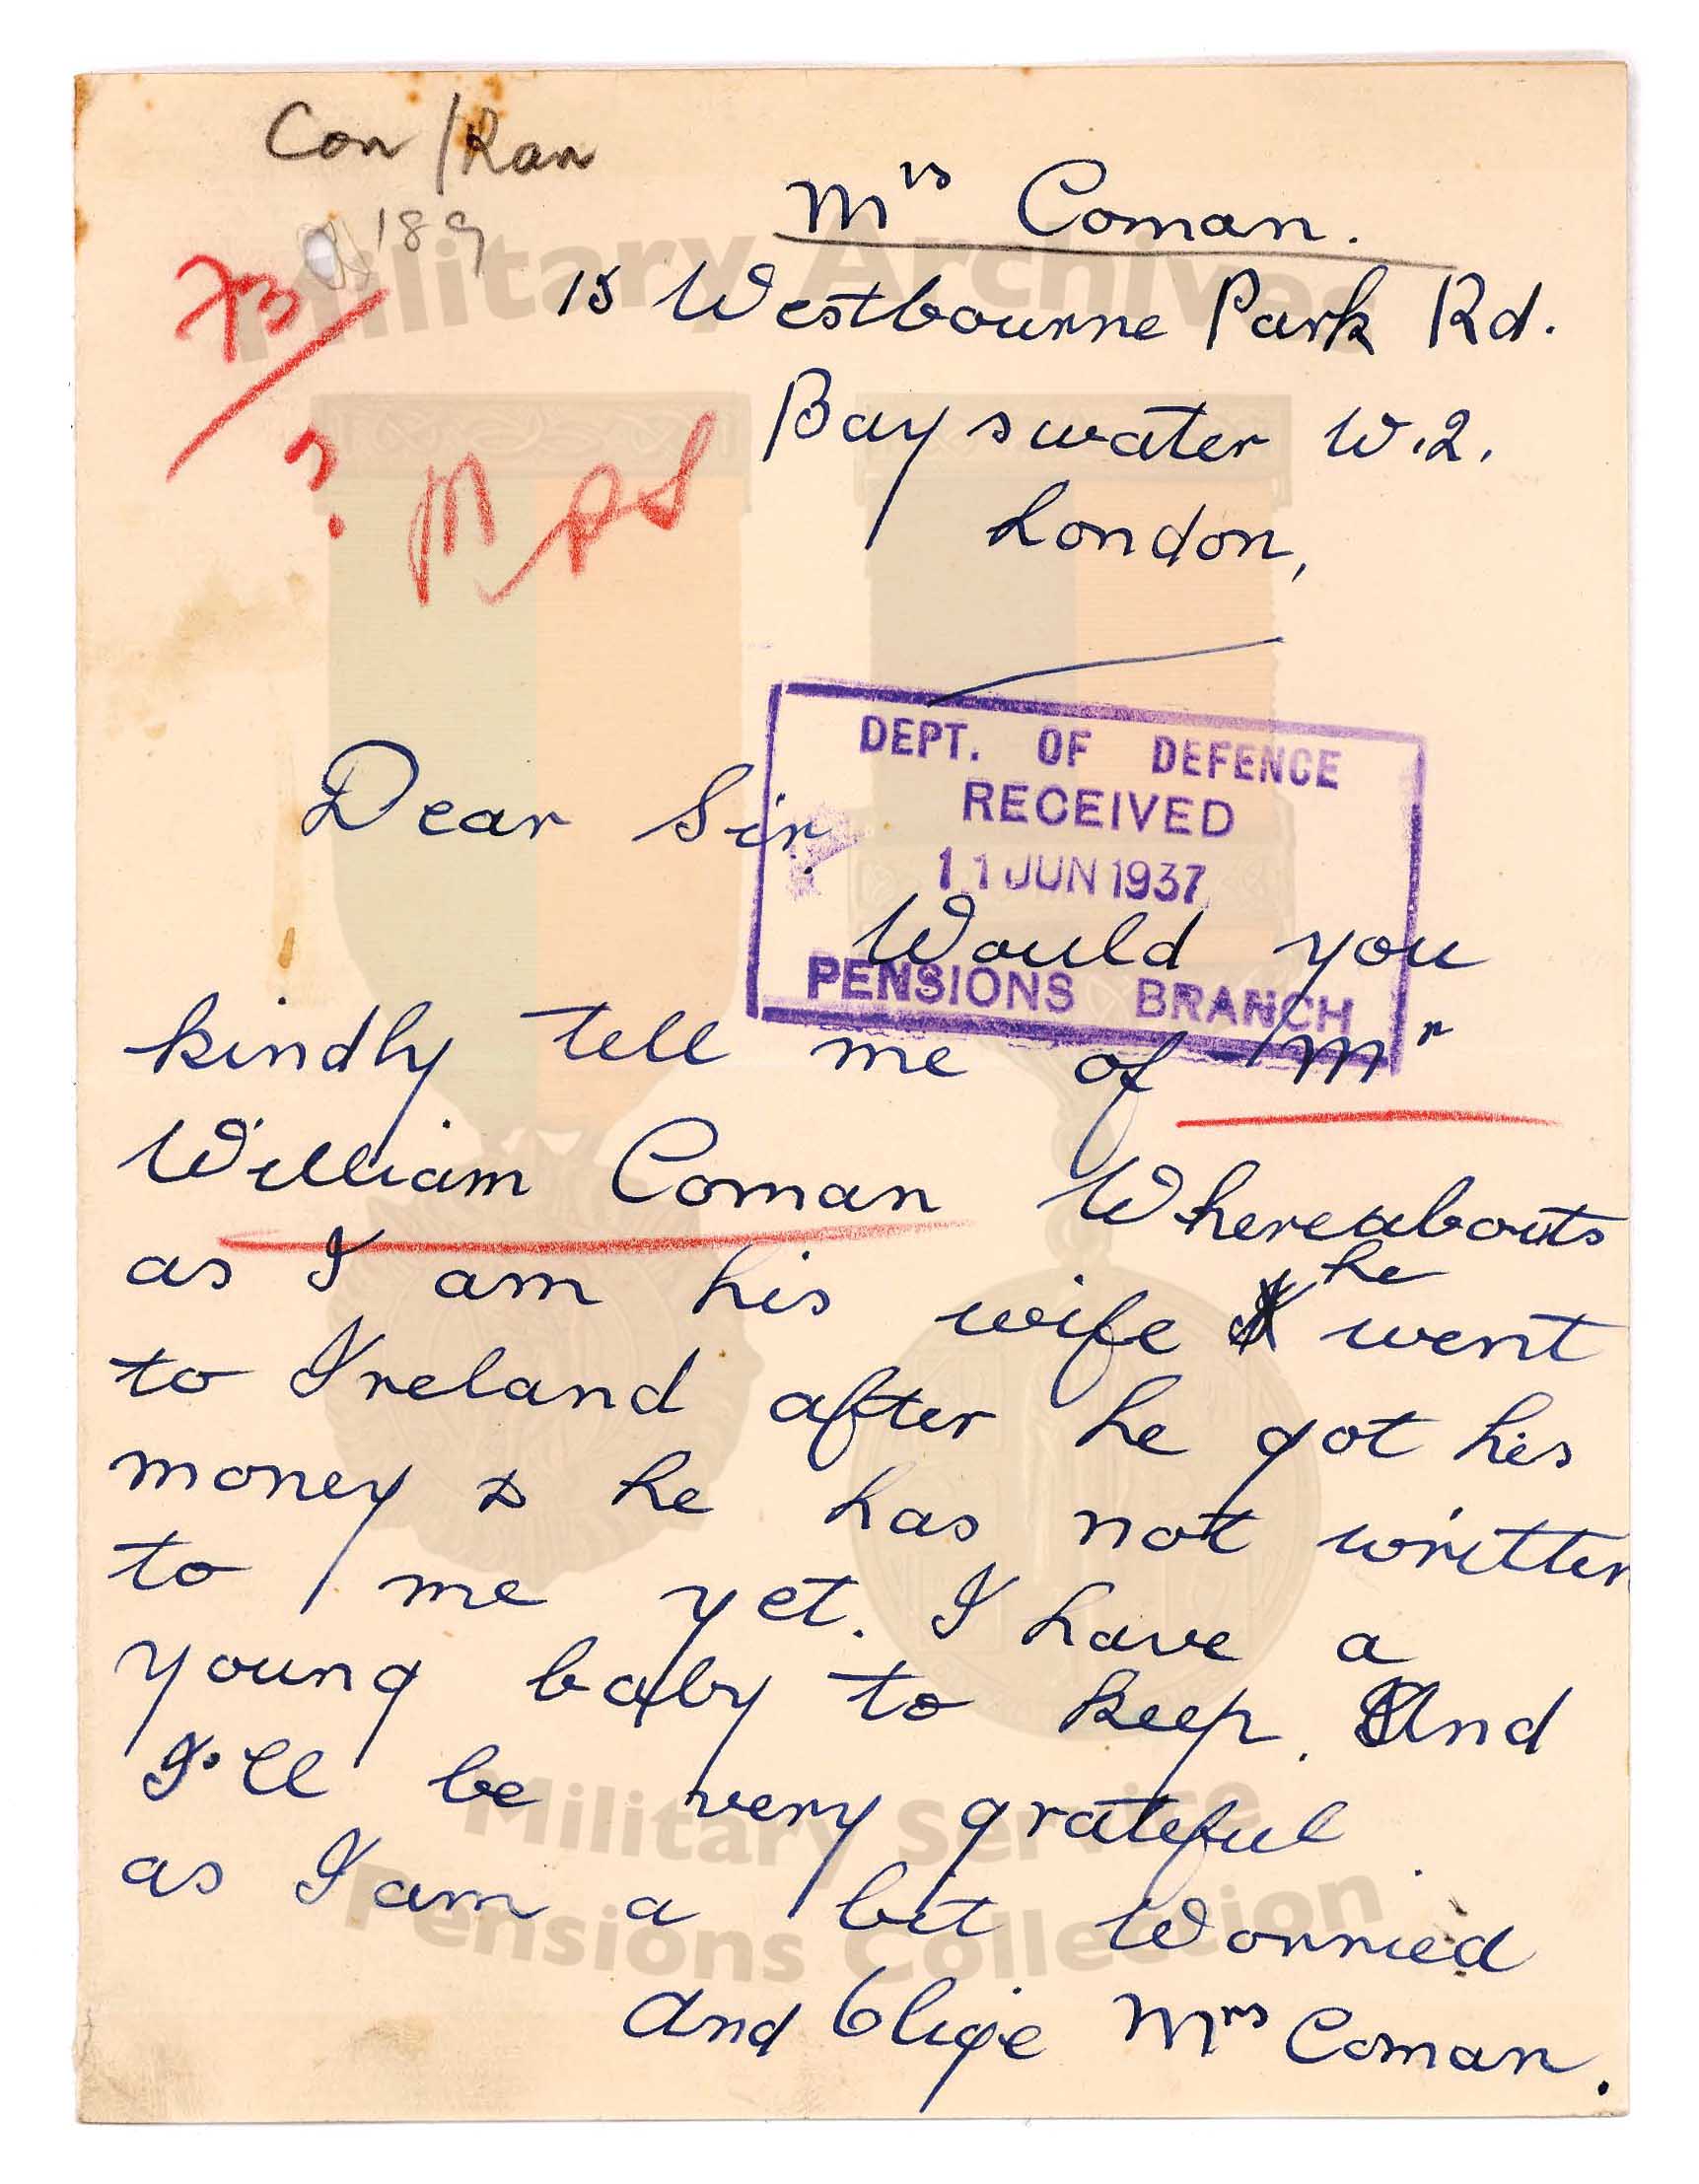 Con/Ran
189
Mrs Coman.
73
15 Westbourne Park Rd.
Bayswater W.2.
London,
?
DEPT. OF DEFENCE
RECEIVED
11 JUN 1937
PENSIONS BRANCH
Dear Sir.
Would you
kindly tell me of Mr
William Coman Whereabouts
as I am his wife he went
to Ireland after he got his
money & he has not written
to me yet. I have a
young baby to keep. And
I'll be very grateful
as I am a bit Worried
And Oblige Mrs Coman.
Military Archives
Military Service
Pensions Collection